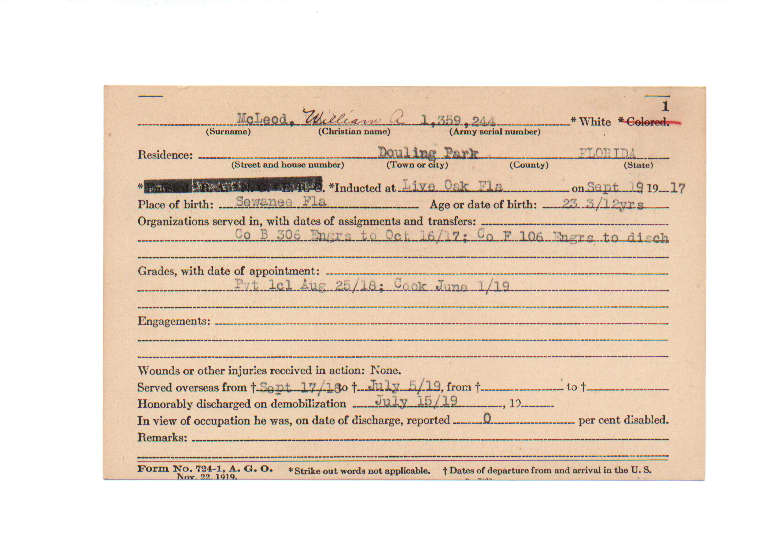 1
McLeod, William R 1,359,244 * White * Colored.
(Surname) (Christian name) (Army serial number)
Residence: Douling Park FLORIDA
(Street and house number) (Town or city) (County) (State)
* *Inducted at Live Oak Fla on Sept 19 19 17
Place of birth: Sewanee Fla Age or date of birth: 23 3/12yrs
Organizations served in, with dates of assignments and transfers:
Co B 306 Engrs to Oct 16/17; Co F 106 Engrs to disch
Grades, with date of appointment:
Pvt 1cl Aug 25/18; Cook June 1/19
Engagements:
Wounds or other injuries received in action: None.
Served overseas from † Sept 17/18 to † July 5/19, from † to †
Honorably discharged on demobilization July 15/19, 19
In view of occupation he was, on date of discharge, reported 0 per cent disabled.
Remarks:
Form No. 724-1, A. G. O. *Strike out words not applicable. † Dates of departure from and arrival in the U. S.
Nov. 22, 1919.